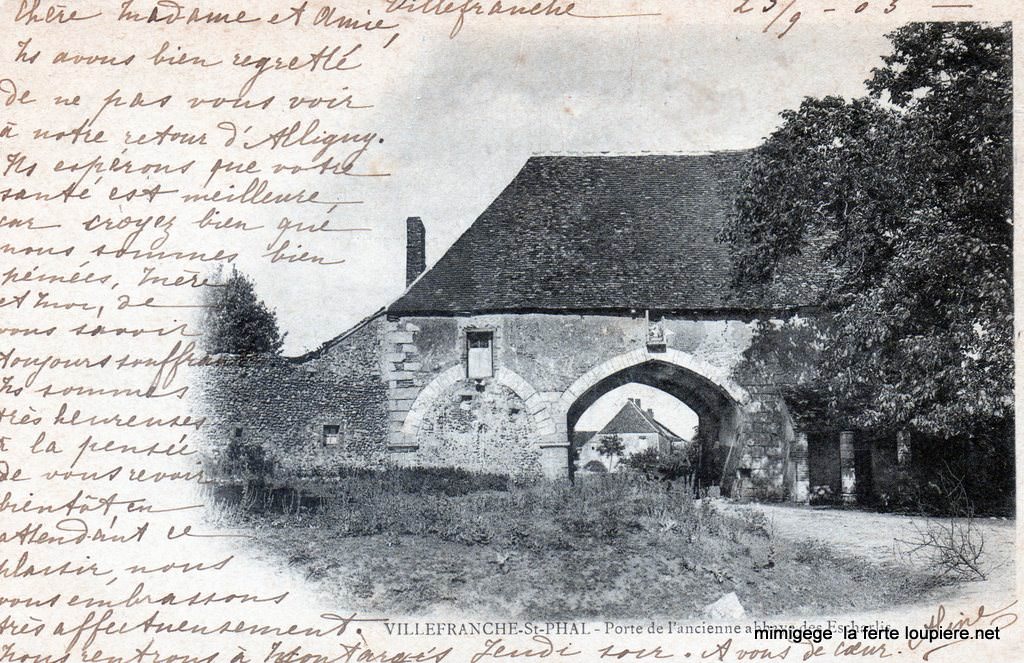 Chère Madame et Amie, Villefranche 23/9 - 03 -
Ns avons bien regretté
de ne pas vous voir
à notre retour d'Alligny.
Ns espérons que votre
santé est meilleure
car croyez bien que
nous sommes bien
peinées, Mère
et moi, de
vous savoir
toujours souffrante
Ns sommes
très heureuses
à la pensée
de vous revoir
bientôt en
attendant ce
plaisir, nous
vous embrassons
très affectueusement.
Nous rentrons à Montargis Jeudi soir. A vous de cœur.
VILLEFRANCHE-St-PHAL - Porte de l'ancienne abbaye des Escharlis
mimigege la ferte loupiere.net